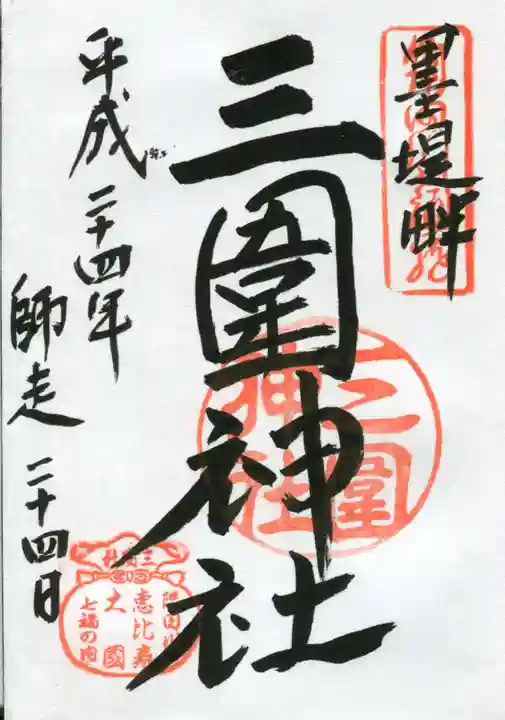 墨堤畔
三囲神社
三圍神社
平成二十四年
師走二十四日
三囲社
隅田川
恵比寿
大國
七福の内